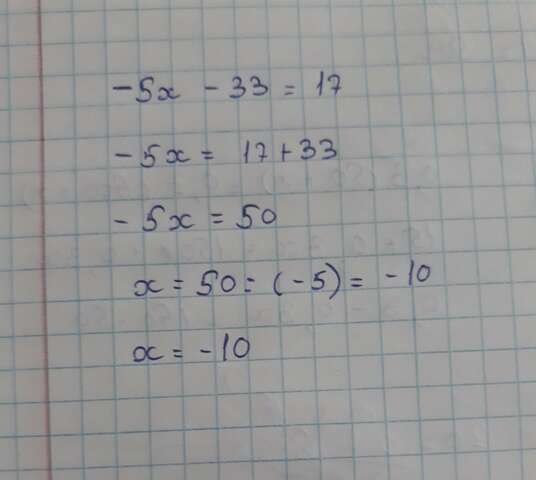 -5x - 33 = 17
-5x = 17 + 33
-5x = 50
x = 50 : (-5) = -10
x = -10